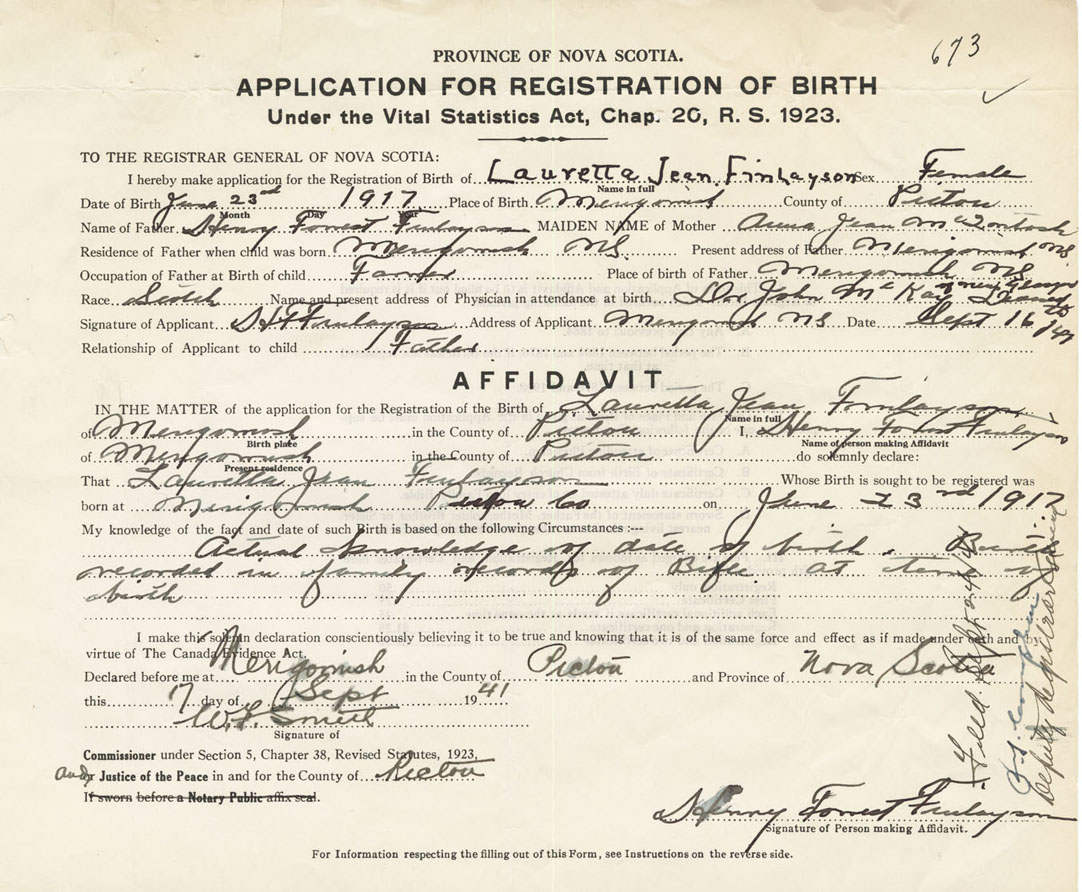 673
PROVINCE OF NOVA SCOTIA.
APPLICATION FOR REGISTRATION OF BIRTH
Under the Vital Statistics Act, Chap. 20, R. S. 1923.
TO THE REGISTRAR GENERAL OF NOVA SCOTIA:
I hereby make application for the Registration of Birth of Lauretta Jean Finlayson Sex Female
Name in full
Date of Birth June 23rd 1917 Place of Birth Merigomish County of Pictou
Month Day Year
Name of Father Henry Forrest Finlayson MAIDEN NAME of Mother Anna Jean McIntosh
Residence of Father when child was born Merigomish NS. Present address of Father Merigomish NS
Occupation of Father at Birth of child Farmer Place of birth of Father Merigomish NS
Race Scotch Name and present address of Physician in attendance at birth Dr John McKay New Glasgow
Signature of Applicant H F Finlayson Address of Applicant Merigomish NS Date Sept 16th/41
Relationship of Applicant to child Father
AFFIDAVIT
IN THE MATTER of the application for the Registration of the Birth of Lauretta Jean Finlayson
Name in full
of Merigomish in the County of Pictou I, Henry Forrest Finlayson
Birth place Name of person making Affidavit
of Merigomish in the County of Pictou do solemnly declare:
Present residence
That Lauretta Jean Finlayson Whose Birth is sought to be registered was
born at Merigomish Pictou Co on June 23rd 1917
My knowledge of the fact and date of such Birth is based on the following Circumstances :---
Actual knowledge of date of birth. Birth
recorded in family records of Bible at time of
birth
I make this solemn declaration conscientiously believing it to be true and knowing that it is of the same force and effect as if made under oath and by
virtue of The Canada Evidence Act.
Declared before me at Merigomish in the County of Pictou and Province of Nova Scotia
this 17 day of Sept 1941
Signature of
Commissioner under Section 5, Chapter 38, Revised Statutes, 1923,
and Justice of the Peace in and for the County of Pictou
If sworn before a Notary Public affix seal.
Henry Forrest Finlayson
Signature of Person making Affidavit.
For Information respecting the filling out of this Form, see Instructions on the reverse side.
Filed Sept 24/41
Deputy Registrar